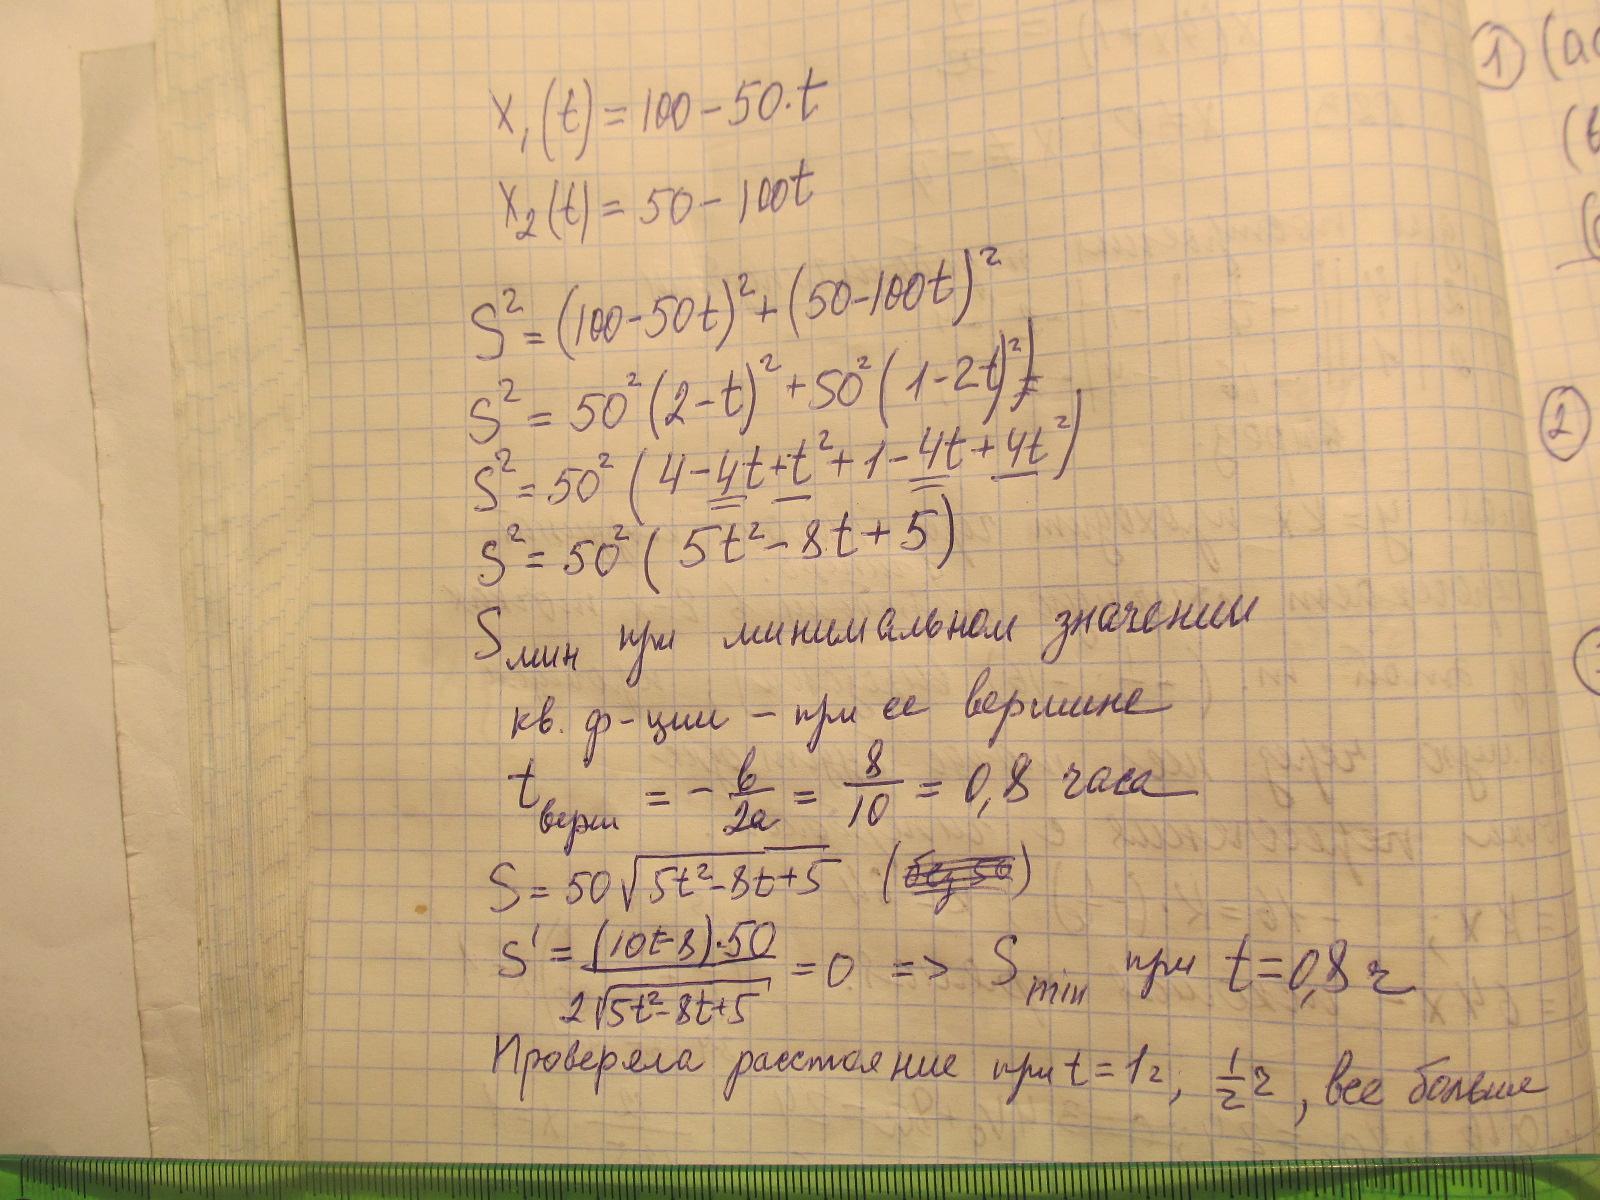 x₁(t) = 100 - 50·t
x₂(t) = 50 - 100t
S² = (100-50t)² + (50-100t)²
S² = 50²(2-t)² + 50²(1-2t)² =
S² = 50²(4-4t+t²+1-4t+4t²)
S² = 50²(5t²-8t+5)
Sмин при минимальном значении
кв. ф-ции - при ее вершине
tверш = -в/2a = 8/10 = 0,8 часа
S = 50√(5t²-8t+5) (без 50)
S' = (10t-8)·50 / 2√(5t²-8t+5) = 0 => Smin при t=0,8 ч
Проверяла расстояние при t=1ч, 1/2 ч, все больше
1 (a
(в
2